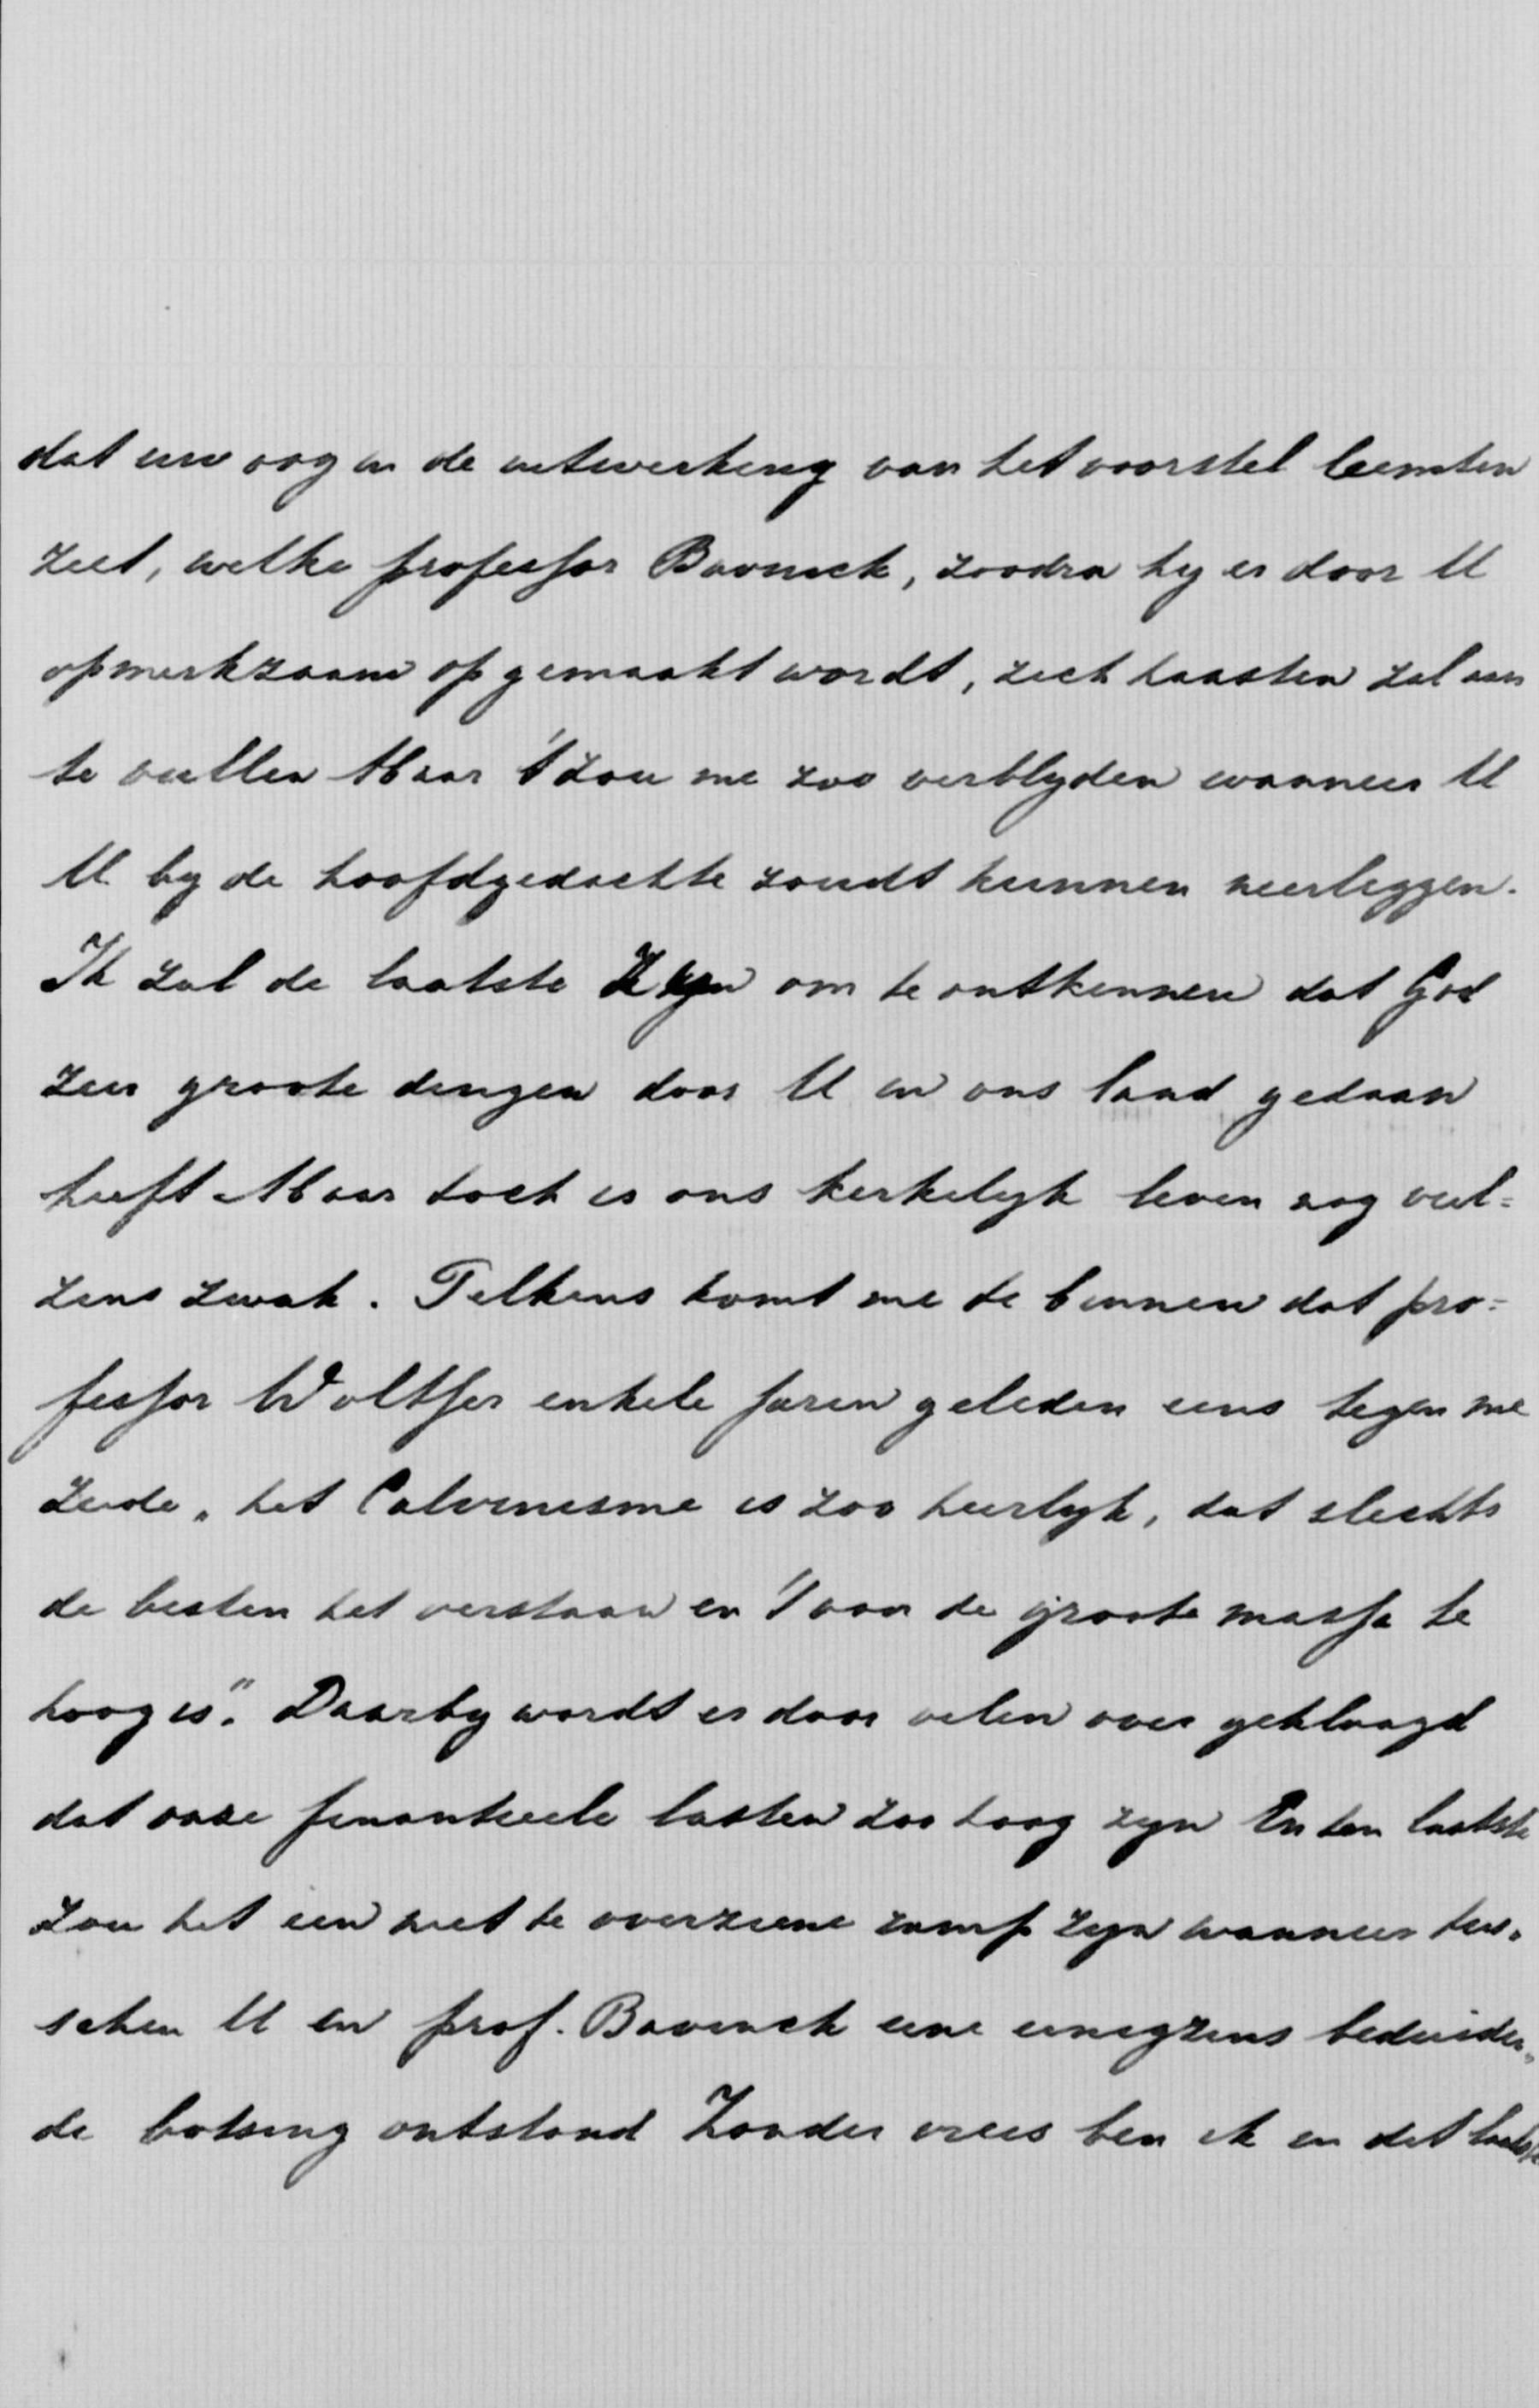 dat uw oog in de uitwerking van het voorstel leemten
ziet, welke professor Bavinck, zoodra hy er door U
opmerkzaam op gemaakt wordt, zich haasten zal aan
te vullen Maar 't zou me zoo verblyden wanneer U
U by de hoofdgedachte zoudt kunnen neerleggen.
Ik zal de laatste zyn om te ontkennen dat God
zeer groote dingen door U in ons land gedaan
heeft Maar toch is ons kerkelyk leven nog veel=
zins zwak. Telkens komt me te binnen dat pro=
fessor Woltjer enkele jaren geleden eens tegen me
zeide „het Calvinisme is zoo heerlyk, dat slechts
de besten het verstaan en 't voor de groote massa te
hoog is". Daarby wordt er door velen over geklaagd
dat onze finantieele lasten zoo hoog zyn En ten laatste
zou het een niet te overziene ramp zyn wanneer tus=
schen U en prof. Bavinck eene eenigzins beduiden=
de botsing ontstond Zonder vrees ben ik in dit laatste